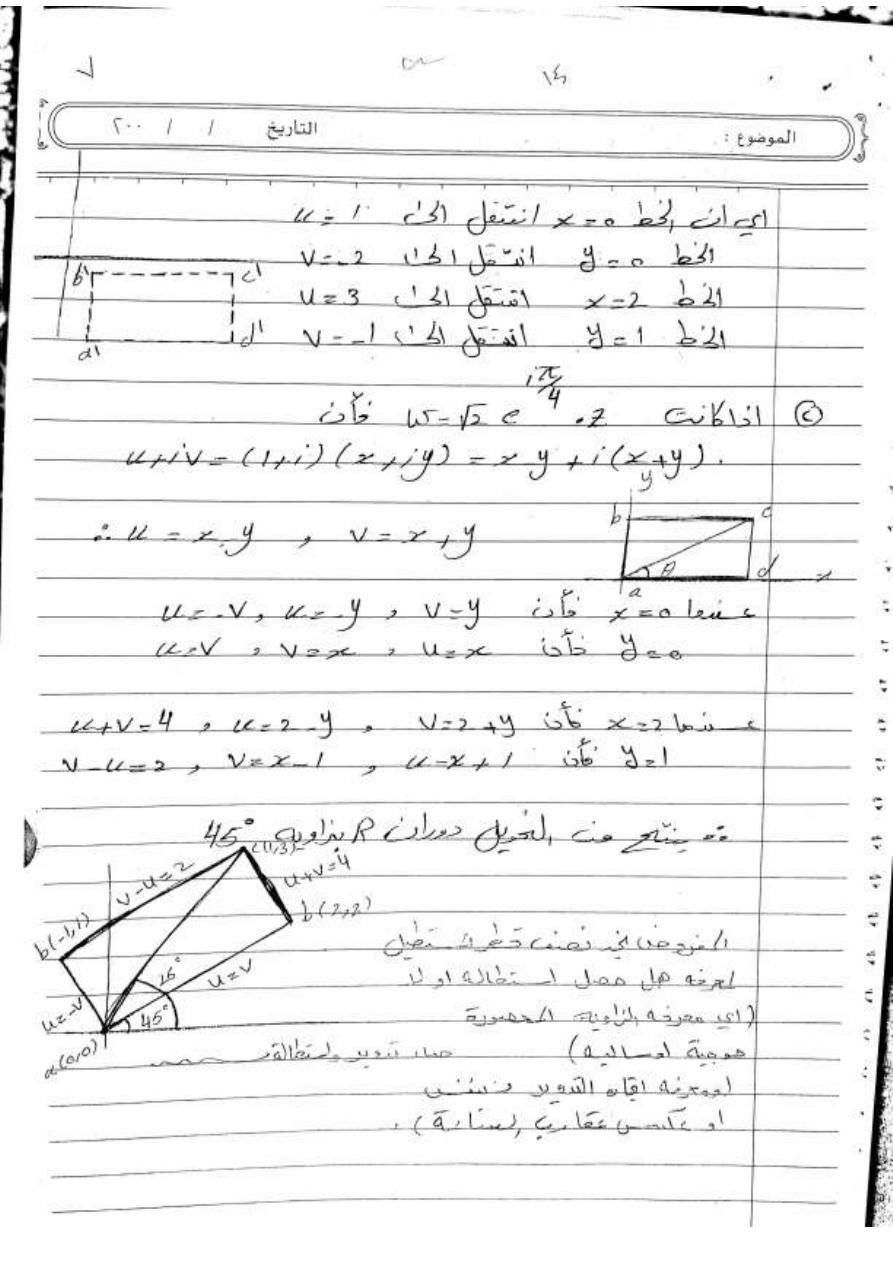 ٧ ١٤
الموضوع : التاريخ / / ٢٠٠
اي ان الخط x=0 انتقل الى u=1
الخط y=0 انتقل الى v=-2
الخط x=2 انتقل الى u=3
الخط y=1 انتقل الى v=-1
b' c'
a' d'
© اذا كانت w=√2 e^{iπ/4} . z فأن
u+iv=(1+i)(x+iy)=x-y+i(x+y).
∴ u=x-y , v=x+y
y
b c
θ d x
a
عندما x=0 فأن v=y , u=-y , u=-v
y=0 فأن u=x , v=x , u=v
عندما x=2 فأن v=2+y , u=2-y , u+v=4
y=1 فأن u=x-1 , v=x+1 , v-u=2
ينتج من التحويل دوران R بزاويه 45°
(1,3)
v-u=2 u+v=4
b(-1,1) b(2,2)
26° u=v
u=-v 45°
a(0,0)
المفروض نصف قطر المستطيل
لمعرفه هل حصل استطالة او لا
(اي معرفه الزاويه المحصورة
موجبة او سالبه) هناك تدوير واستطالة
او عكس عقارب الساعة) .